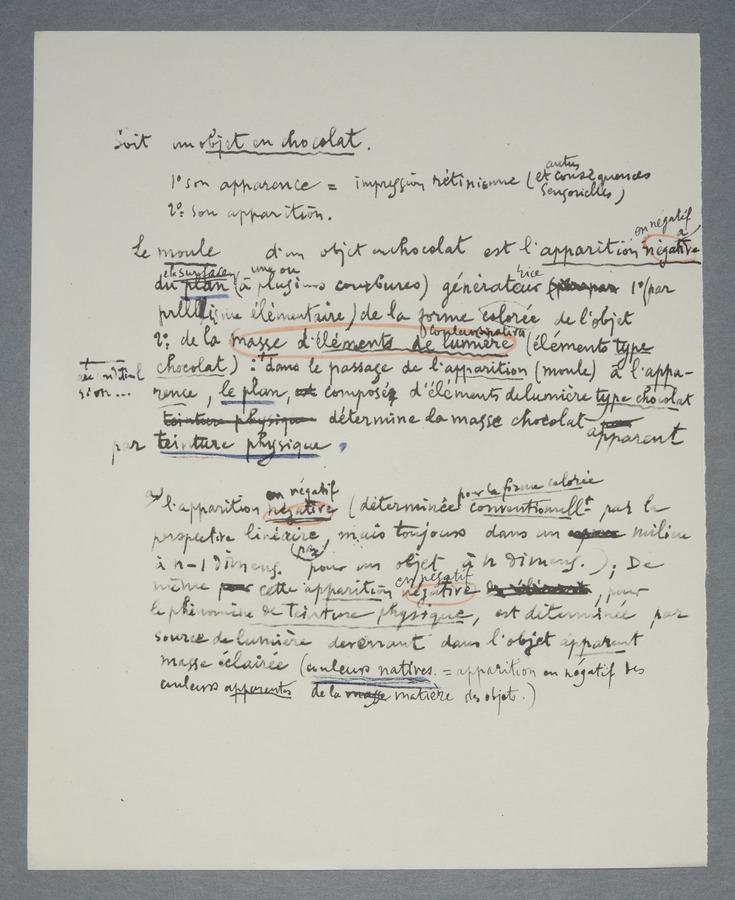 Soit un objet en chocolat.
1º son apparence = impression rétinienne (et conséquences
autres
sensorielles)
2º son apparition.
en négatif
Le moule d'un objet en chocolat est l'apparition négative
à
et surfaces une ou
du plan (à plusieurs courbures) génératrice 1º (par
élémentaire) de la forme colorée de l'objet
couleur native
2º de la masse d'éléments de lumière (éléments type
chocolat) : dans le passage de l'apparition (moule) à l'appa-
rence, le plan, composé d'éléments de lumière type chocolat
teinture physique détermine la masse chocolat apparent
par teinture physique.
en négatif pour la forme colorée
a) l'apparition négative (déterminée conventionellt par la
perspective linéaire, mais toujours dans un milieu
à n-1 dimens. pour un objet à n dimens.); De
en négatif
même par cette apparition négative, pour
le phénomène de teinture physique, est déterminée par
source de lumière devenant dans l'objet apparent
masse éclairée (couleurs natives = apparition en négatif des
couleurs apparentes de la masse matière des objets.)